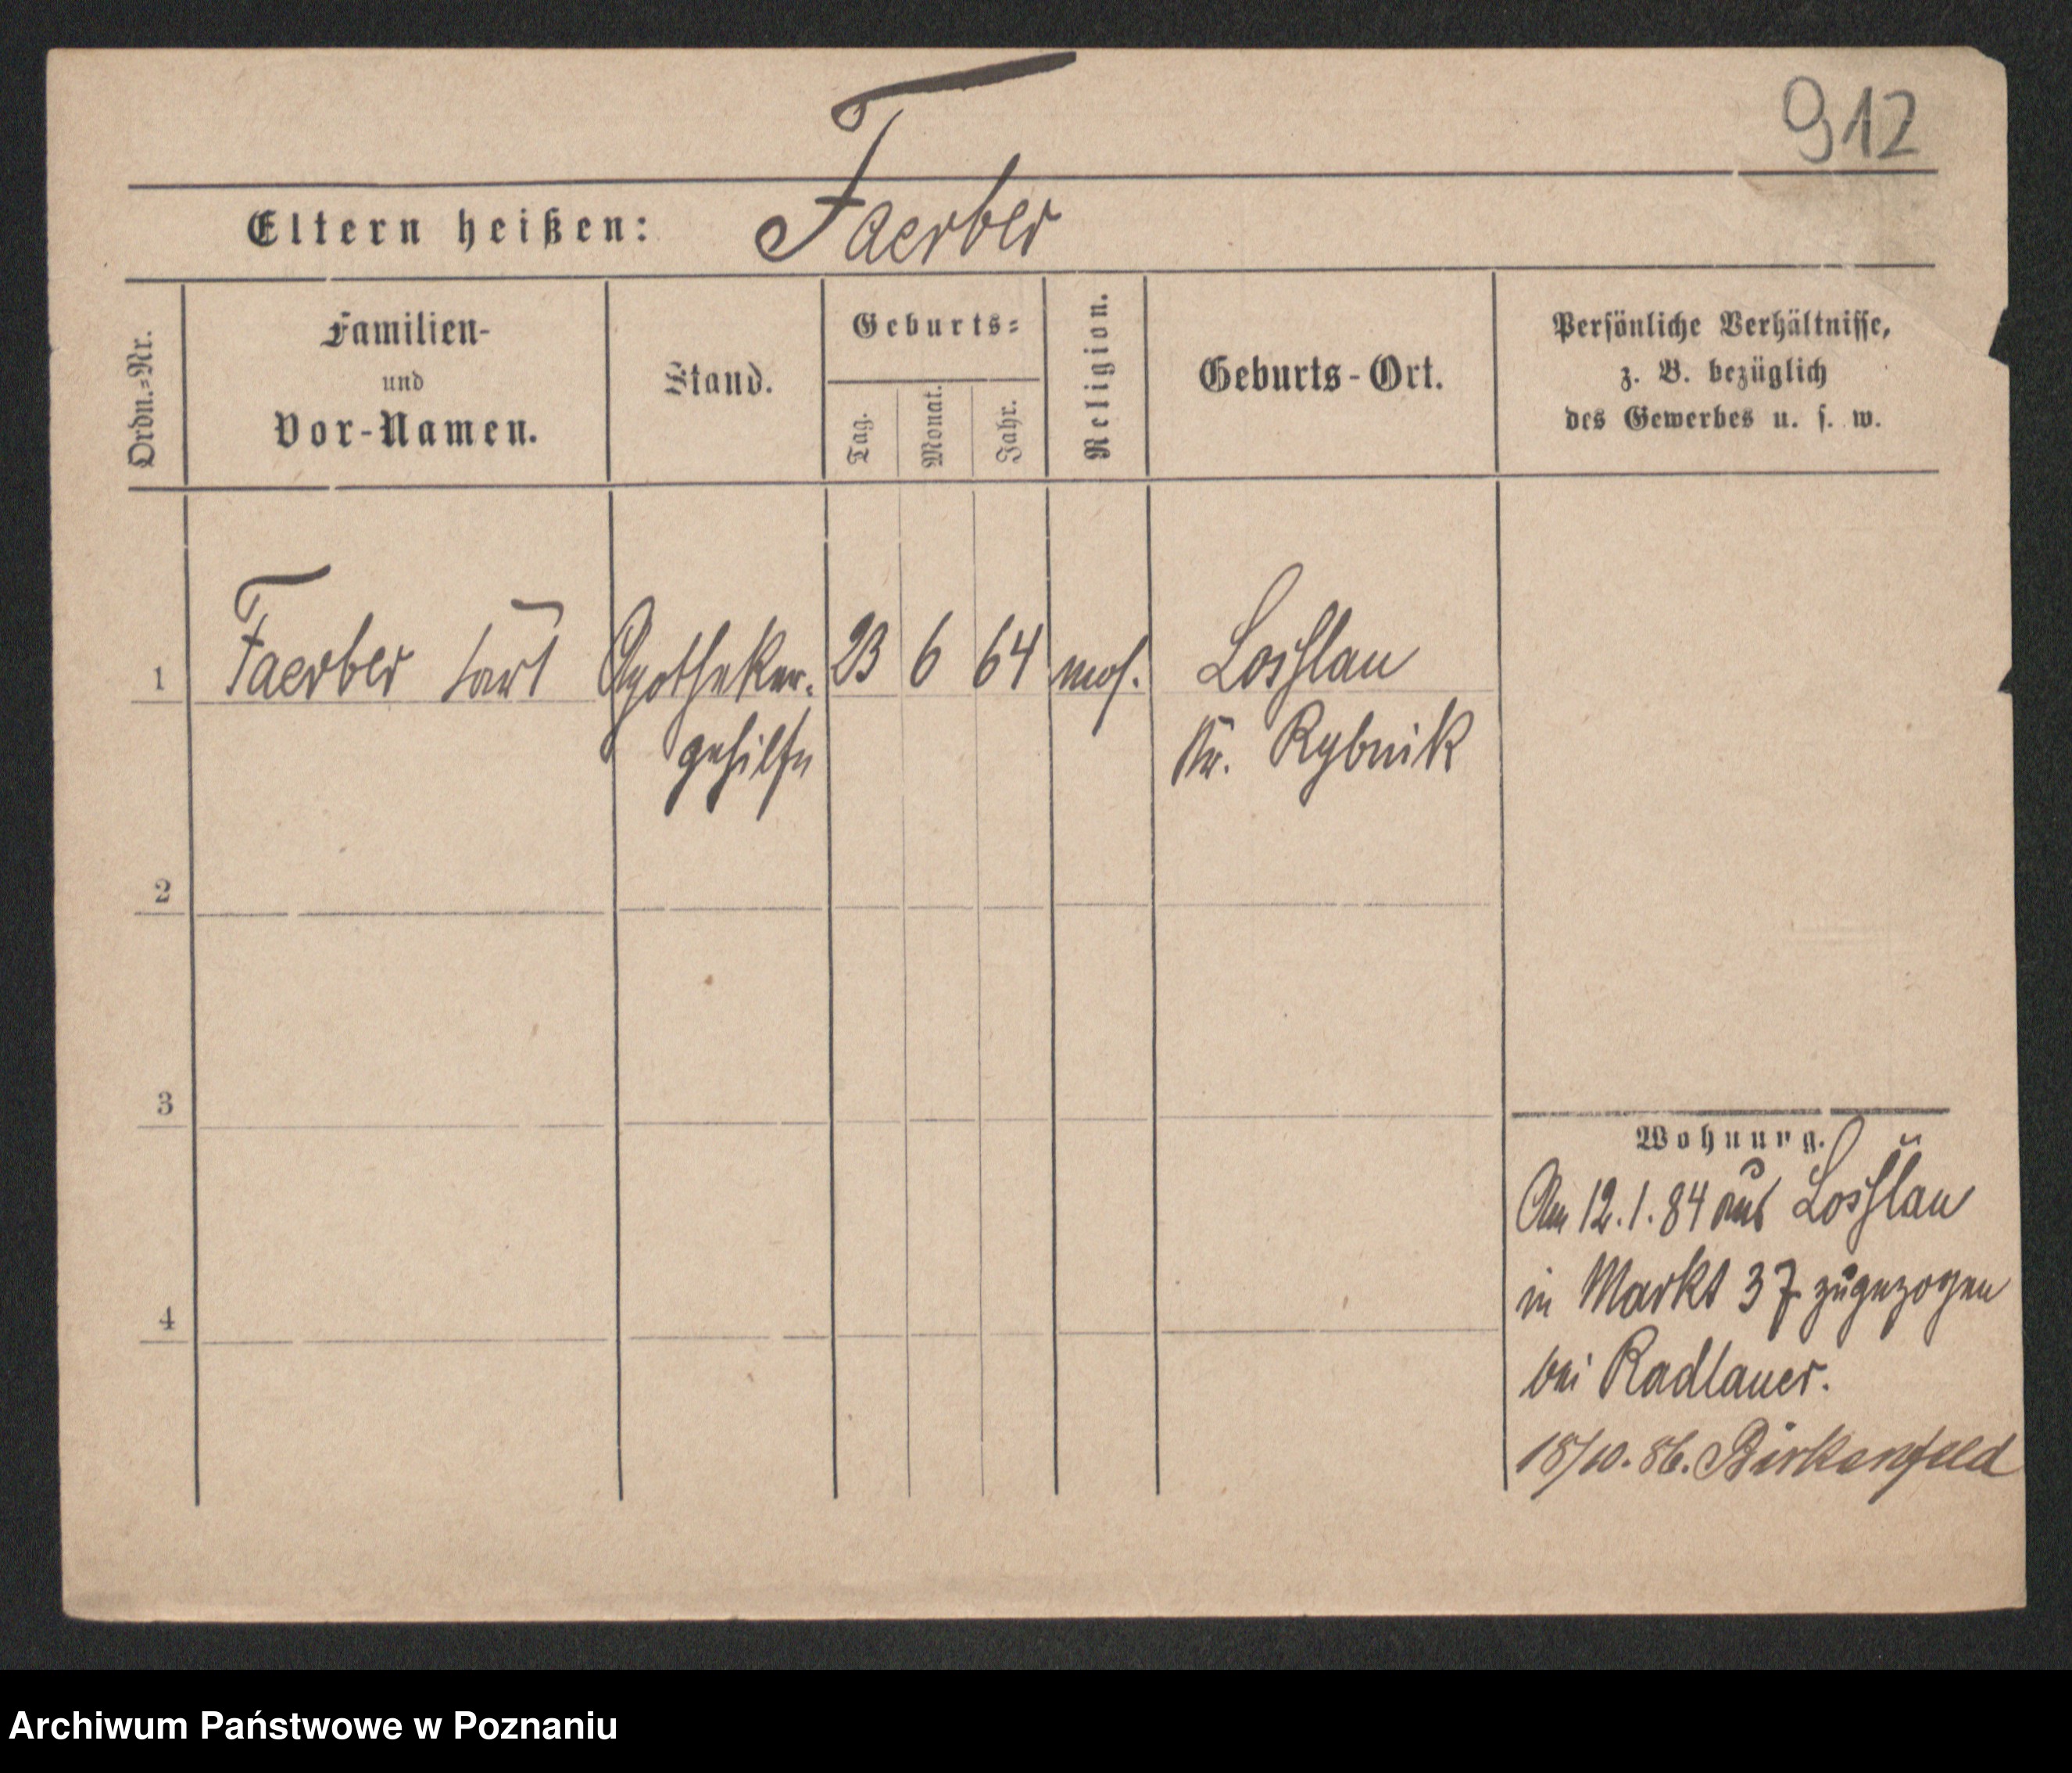 912
Eltern heißen: Faerber
Ordn.=Nr.
Familien-
und
Vor-Namen.
Stand.
Geburts=
Tag.
Monat.
Jahr.
Religion.
Geburts-Ort.
Persönliche Verhältnisse,
z. B. bezüglich
des Gewerbes u. s. w.
1 Faerber Apotheker- 23 6 64 mos. Losslau
gehilfe Kr. Rybnik
2
3
4
Wohnung.
Am 12.1.84 aus Losslau
in Markt 37 zugezogen
bei Radlauer.
18/10.86. Birkenfeld
Archiwum Państwowe w Poznaniu